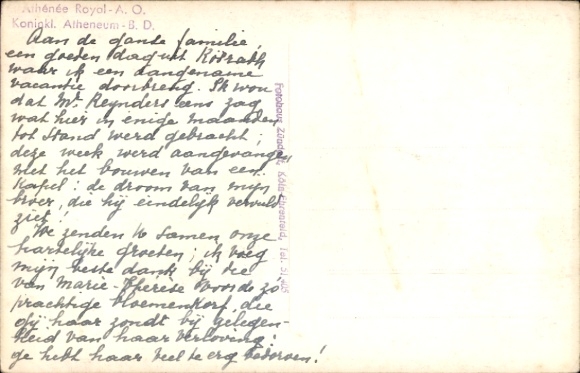 Athénée Royal - A. O.
Koninkl. Atheneum - B. D.
Aan de ganse familie,
een goeden dag uit Rösrath
waar ik een aangename
vacantie doorbreng. Ik wou
dat Mr. Reynders eens zag
wat hier in enige maanden
tot stand werd gebracht;
deze week werd aangevangen
met het bouwen van een
Kapel: de droom van mijn
broer, die hij eindelijk vervuld
ziet!
We zenden U samen onze
hartelijke groeten; ik voeg
mijn beste dank bij die
van Marie-Thérèse voor de zo
prachtige bloemenkorf, die
gij haar zondt bij gelegen-
heid van haar verloving:
ge hebt haar veel te erg bedorven!
Fotohaus Köln Tel.